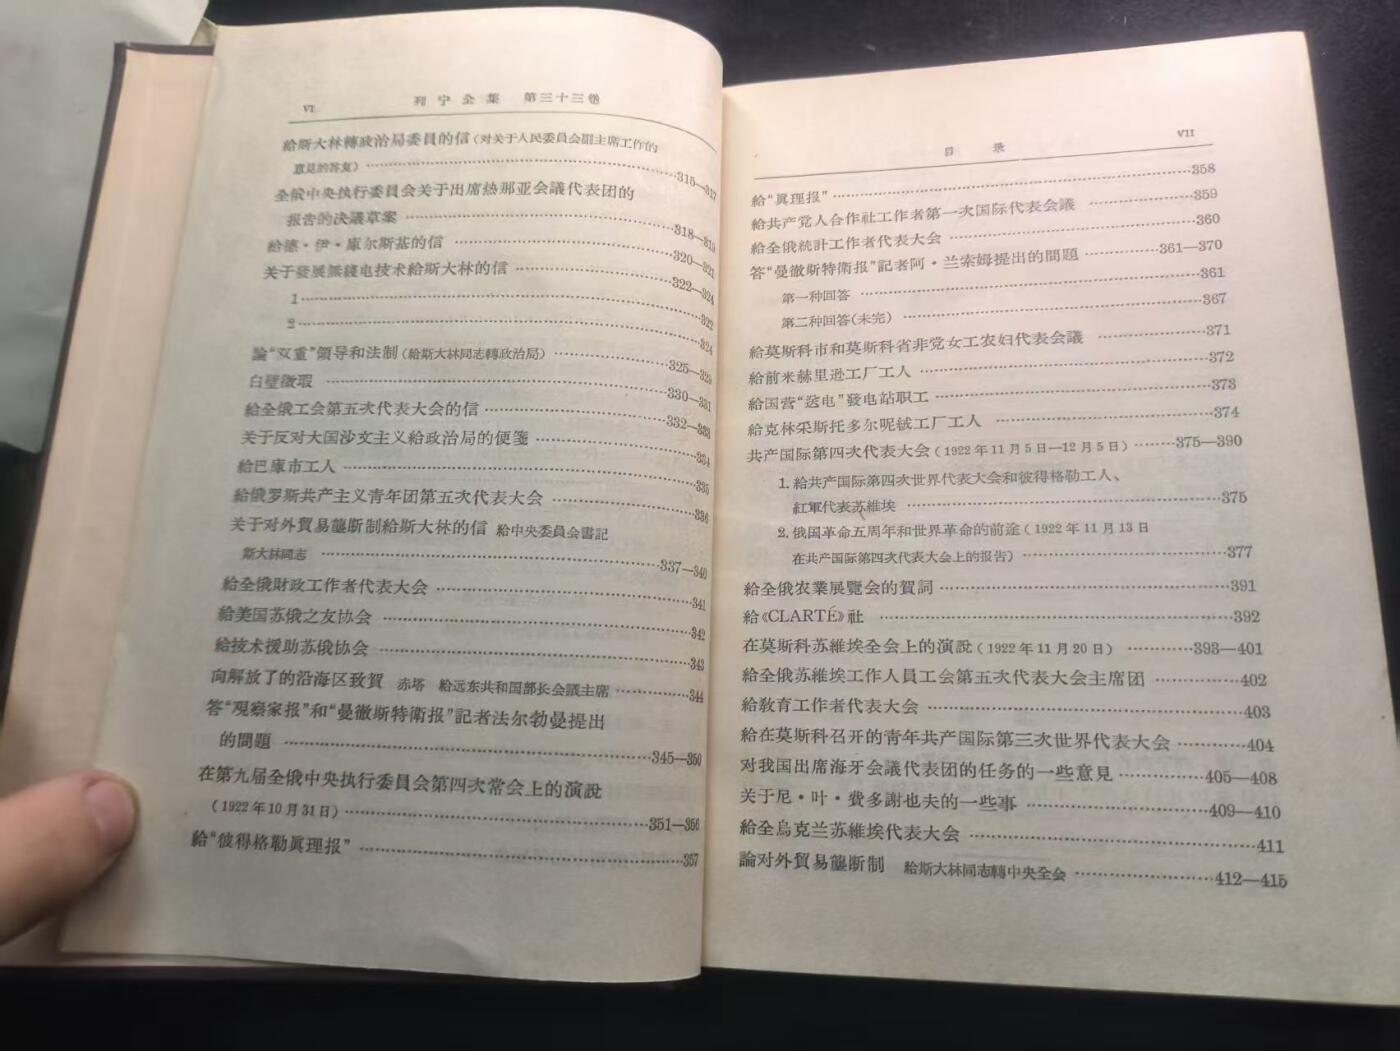 VI 列宁全集 第三十三卷
給斯大林轉政治局委員的信(对关于人民委員会副主席工作的
意見的答复)……315—317
全俄中央执行委員会关于出席热那亚会議代表团的
报告的决議草案……318—319
給德·伊·庫尔斯基的信……320—321
关于發展無綫电技术給斯大林的信……322—324
1……322
2……324
論“双重”領导和法制(給斯大林同志轉政治局)……325—329
白璧微瑕……330—331
給全俄工会第五次代表大会的信……332—333
关于反对大国沙文主义給政治局的便箋……334
給巴庫市工人……335
給俄罗斯共产主义青年团第五次代表大会……336
关于对外貿易壟断制給斯大林的信 給中央委員会書記
斯大林同志……337—340
給全俄財政工作者代表大会……341
給美国苏俄之友协会……342
給技术援助苏俄协会……343
向解放了的沿海区致賀 赤塔 給远东共和国部长会議主席……344
答“观察家报”和“曼徹斯特衛报”記者法尔勃曼提出
的問題……345—350
在第九届全俄中央执行委員会第四次常会上的演說
(1922年10月31日)……351—356
給“彼得格勒眞理报”……357
目录 VII
給“眞理报”……358
給共产党人合作社工作者第一次国际代表会議……359
給全俄統計工作者代表大会……360
答“曼徹斯特衛报”記者阿·兰索姆提出的問題……361—370
第一种回答……361
第二种回答(未完)……367
給莫斯科市和莫斯科省非党女工农妇代表会議……371
給前米赫里逊工厂工人……372
給国营“送电”發电站职工……373
給克林采斯托多尔呢絨工厂工人……374
共产国际第四次代表大会(1922年11月5日—12月5日)……375—390
1. 給共产国际第四次世界代表大会和彼得格勒工人、
紅軍代表苏維埃……375
2. 俄国革命五周年和世界革命的前途(1922年11月13日
在共产国际第四次代表大会上的报告)……377
給全俄农業展覽会的賀詞……391
給《CLARTÉ》社……392
在莫斯科苏維埃全会上的演說(1922年11月20日)……393—401
給全俄苏維埃工作人員工会第五次代表大会主席团……402
給敎育工作者代表大会……403
給在莫斯科召开的青年共产国际第三次世界代表大会……404
对我国出席海牙会議代表团的任务的一些意見……405—408
关于尼·叶·費多謝也夫的一些事……409—410
給全烏克兰苏維埃代表大会……411
論对外貿易壟断制 給斯大林同志轉中央全会……412—415